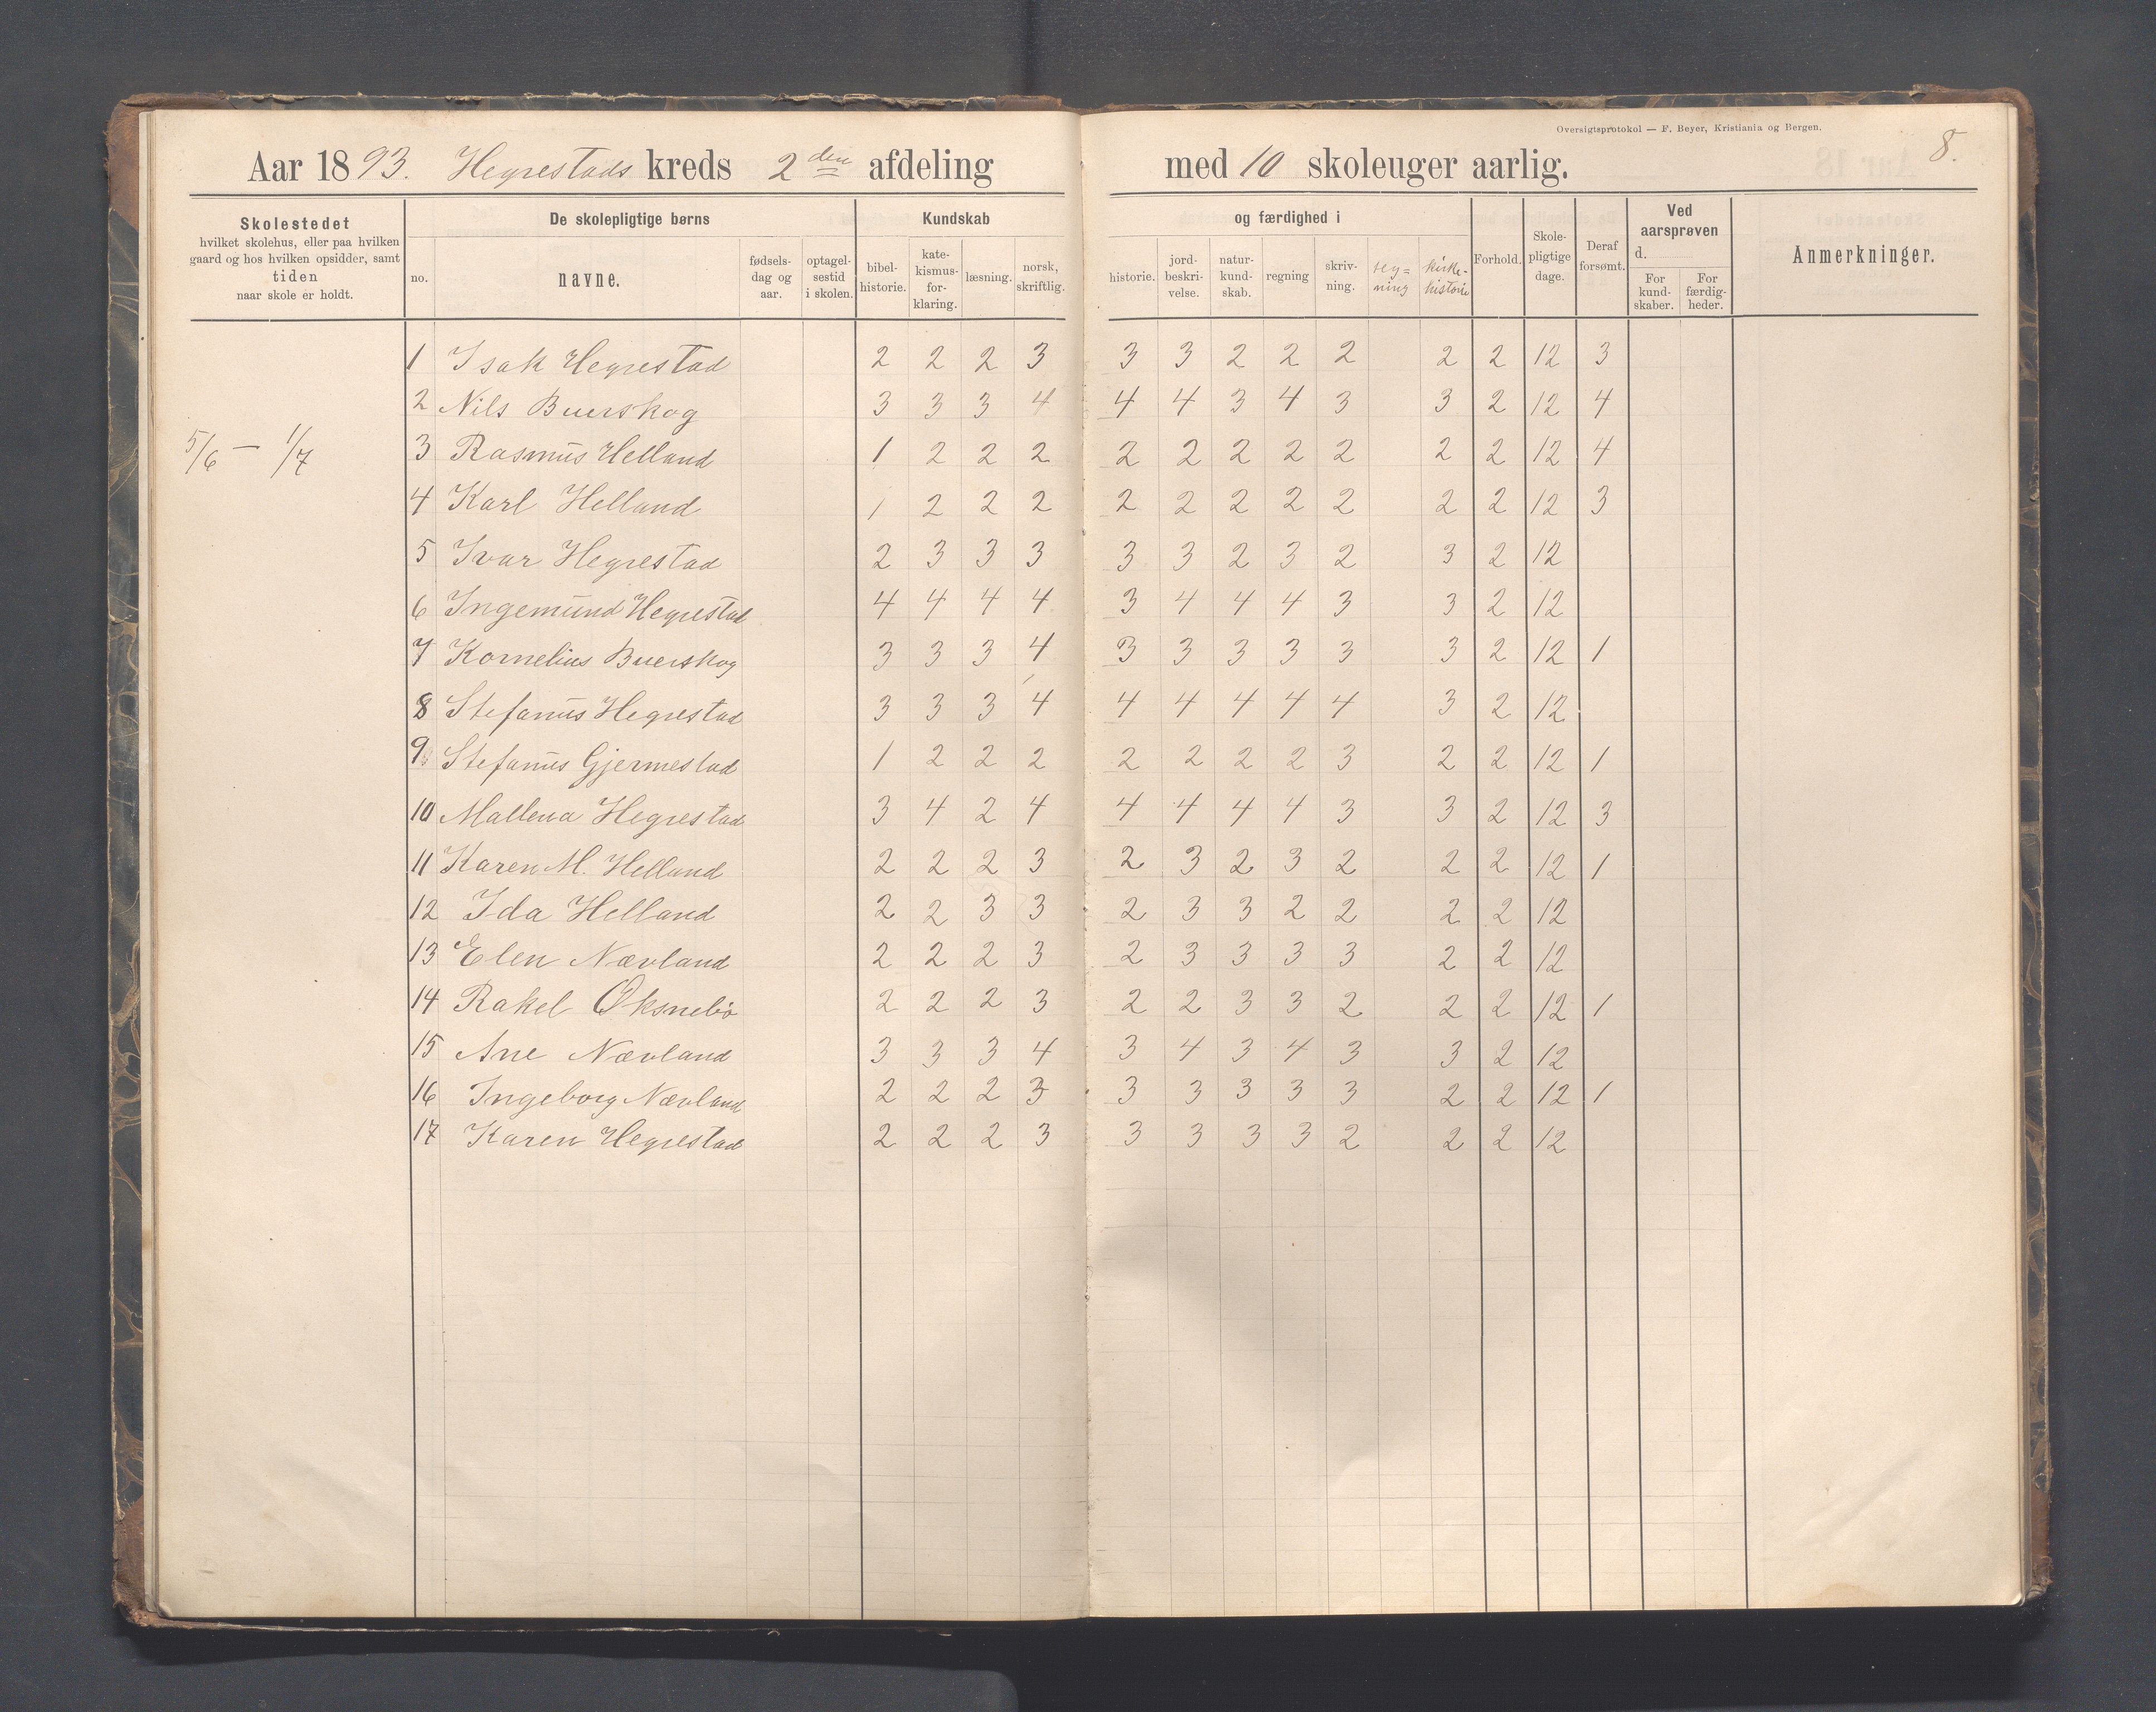 Oversigtsprotokol — F. Beyer, Kristiania og Bergen.
8.
Aar 1893. Hegrestads kreds 2den afdeling med 10 skoleuger aarlig.
Skolestedet hvilket skolehus, eller paa hvilken gaard og hos hvilken opsidder, samt tiden naar skole er holdt.
De skolepligtige børns
no. navne. fødsels-dag og aar. optagel-sestid i skolen.
Kundskab og færdighed i
bibel-historie. kate-kismus-for-klaring. læsning. norsk, skriftlig. historie. jord-beskri-velse. natur-kund-skab. regning skriv-ning. teg=ning kirke-historie
Forhold. Skole-pligtige dage. Deraf forsømt.
Ved aarsprøven d.
For kund-skaber. For færdig-heder.
Anmerkninger.
1 Isak Hegrestad 2 2 2 3 3 3 2 2 2 2 2 12 3
2 Nils Buerskog 3 3 3 4 4 4 3 4 3 3 2 12 4
5/6 — 1/7
3 Rasmus Helland 1 2 2 2 2 2 2 2 2 2 2 12 4
4 Karl Helland 1 2 2 2 2 2 2 2 2 2 2 12 3
5 Ivar Hegrestad 2 3 3 3 3 3 2 3 2 3 2 12
6 Ingemund Hegrestad 4 4 4 4 3 4 4 4 3 3 2 12
7 Kornelius Buerskog 3 3 3 4 3 3 3 3 3 3 2 12 1
8 Stefanus Hegrestad 3 3 3 4 4 4 4 4 4 3 2 12
9 Stefanus Gjermestad 1 2 2 2 2 2 2 2 3 2 2 12 1
10 Mallena Hegrestad 3 4 2 4 4 4 4 4 3 3 2 12 3
11 Karen M. Helland 2 2 2 3 2 3 2 3 2 2 2 12 1
12 Ida Helland 2 2 3 3 2 3 3 2 2 2 2 12
13 Elen Nævland 2 2 2 3 2 3 3 3 3 2 2 12
14 Rakel Øksnebø 2 2 2 3 2 2 3 3 2 2 2 12 1
15 Ane Nævland 3 3 3 4 3 4 3 4 3 3 2 12
16 Ingeborg Nævland 2 2 2 3 3 3 3 3 3 2 2 12 1
17 Karen Hegrestad 2 2 2 3 3 3 3 3 2 2 2 12